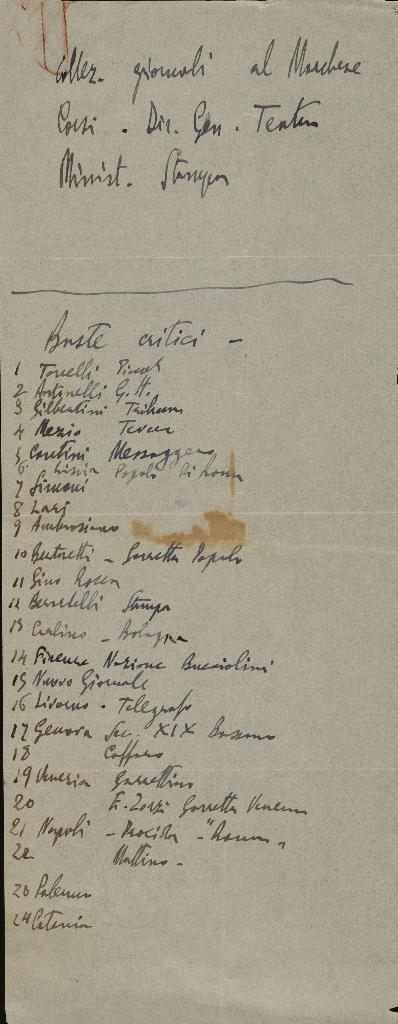 Collez. giornali al Marchese
Corsi. Dir. Gen. Teatro
Minist. Stampa
Buste critici -
1 Tonelli Piccolo
2 Antonelli G. It.
3 Gilbertini Tribuna
4 Mezio Tevere
5 Contini Messaggero
6 Popolo Di Roma
7 Simoni
8 Lari
9 Ambrosiano
10 Bertuetti - Gazzetta Popolo
11 Gino Rocca
12 Bernardelli Stampa
13 Carlino - Bologna
14 Firenze Nazione Bucciolini
15 Nuovo Giornale
16 Livorno - Telegrafo
17 Genova Sec. XIX Bassano
18 Caffaro
19 Venezia Gazzettino
20 E. Zorzi Gazzetta Venezia
21 Napoli - Procida - "Roma"
22 Mattino -
23 Palermo
24 Catania